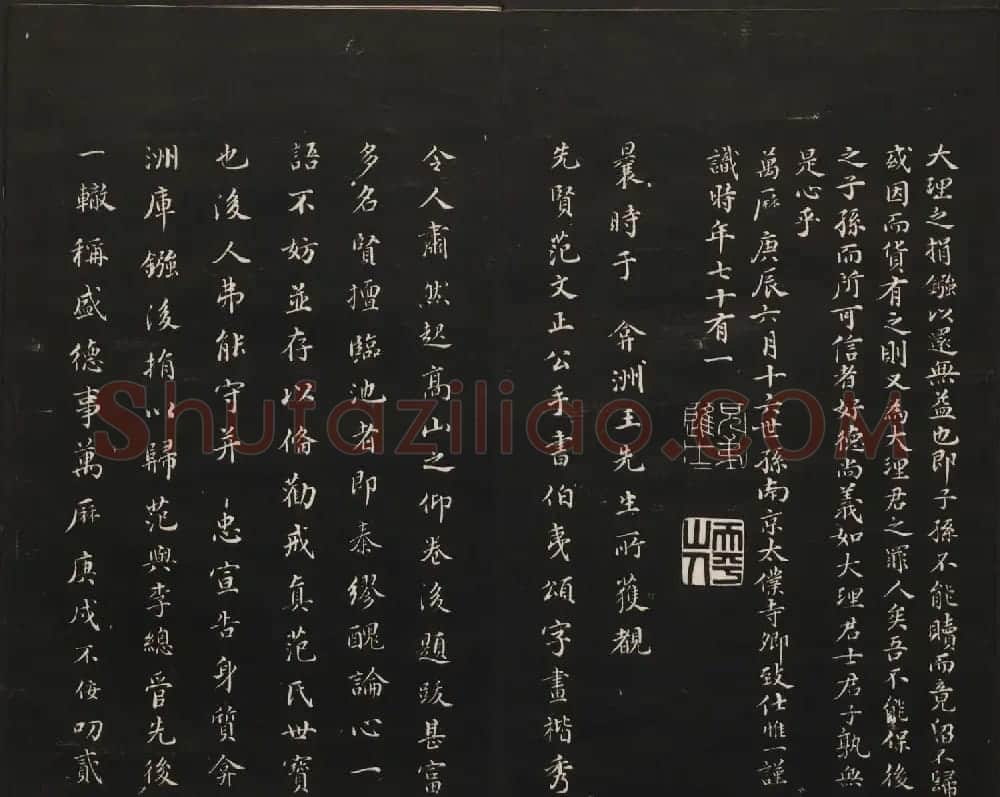 大理之捐鏹以還無益也即子孫不能贖而竟留不歸
或因而貨有之則又為大理君之罪人矣吾不能保後
之子孫而所可信者好德尚義如大理君士君子孰無
是心乎
萬厯庚辰六月十六世孫南京太僕寺卿致仕惟一謹
識時年七十有一
曩時于 弇洲王先生所獲觀
先賢范文正公手書伯夷頌字畫楷秀
令人肅然起高山之仰卷後題跋甚富
多名賢擅臨池者即秦繆醜論心一
語不妨並存以俻勸戒真范氏世寶
也後人弗能守并 忠宣告身質弇
洲庫鏹後捐以歸范與李總督先後
一轍稱盛德事萬厯庚戌不佞叨貳
Shufaziliao.COM